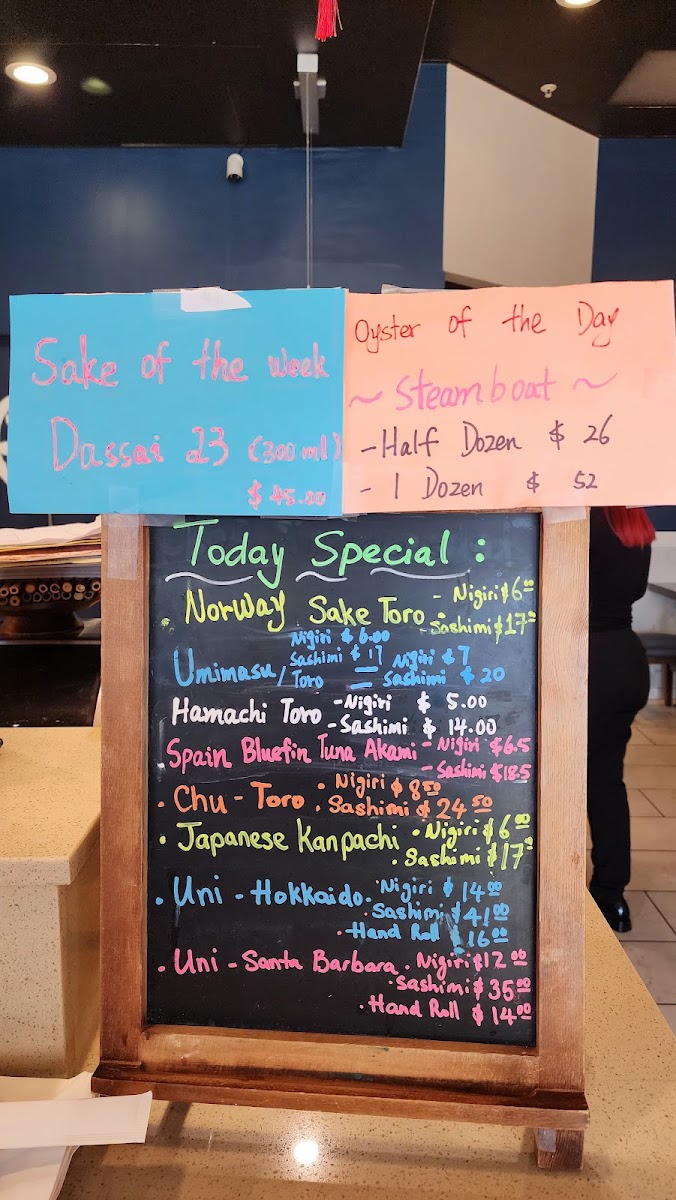 Sake of the week
Dassai 23 (300 ml)
$ 45.00
Oyster of the Day
~ Steamboat ~
- Half Dozen $ 26
- 1 Dozen $ 52
Today Special :
. Norway Sake Toro - Nigiri $6.00
- Sashimi $17.00
Umimasu / Nigiri $ 6.00
Sashimi $ 17
Toro - Nigiri $7
- Sashimi $ 20
Hamachi Toro - Nigiri $ 5.00
- Sashimi $ 14.00
. Spain Bluefin Tuna Akami - Nigiri $6.5
- Sashimi $18.5
. Chu - Toro . Nigiri $ 8.50
. Sashimi $ 24.50
. Japanese Kanpachi . Nigiri $ 6.00
. Sashimi $17.00
. Uni - Hokkaido . Nigiri $ 14.00
. Sashimi $41.00
. Hand Roll $16.00
. Uni - Santa Barbara . Nigiri $12.00
. Sashimi $ 35.00
. Hand Roll $ 14.00